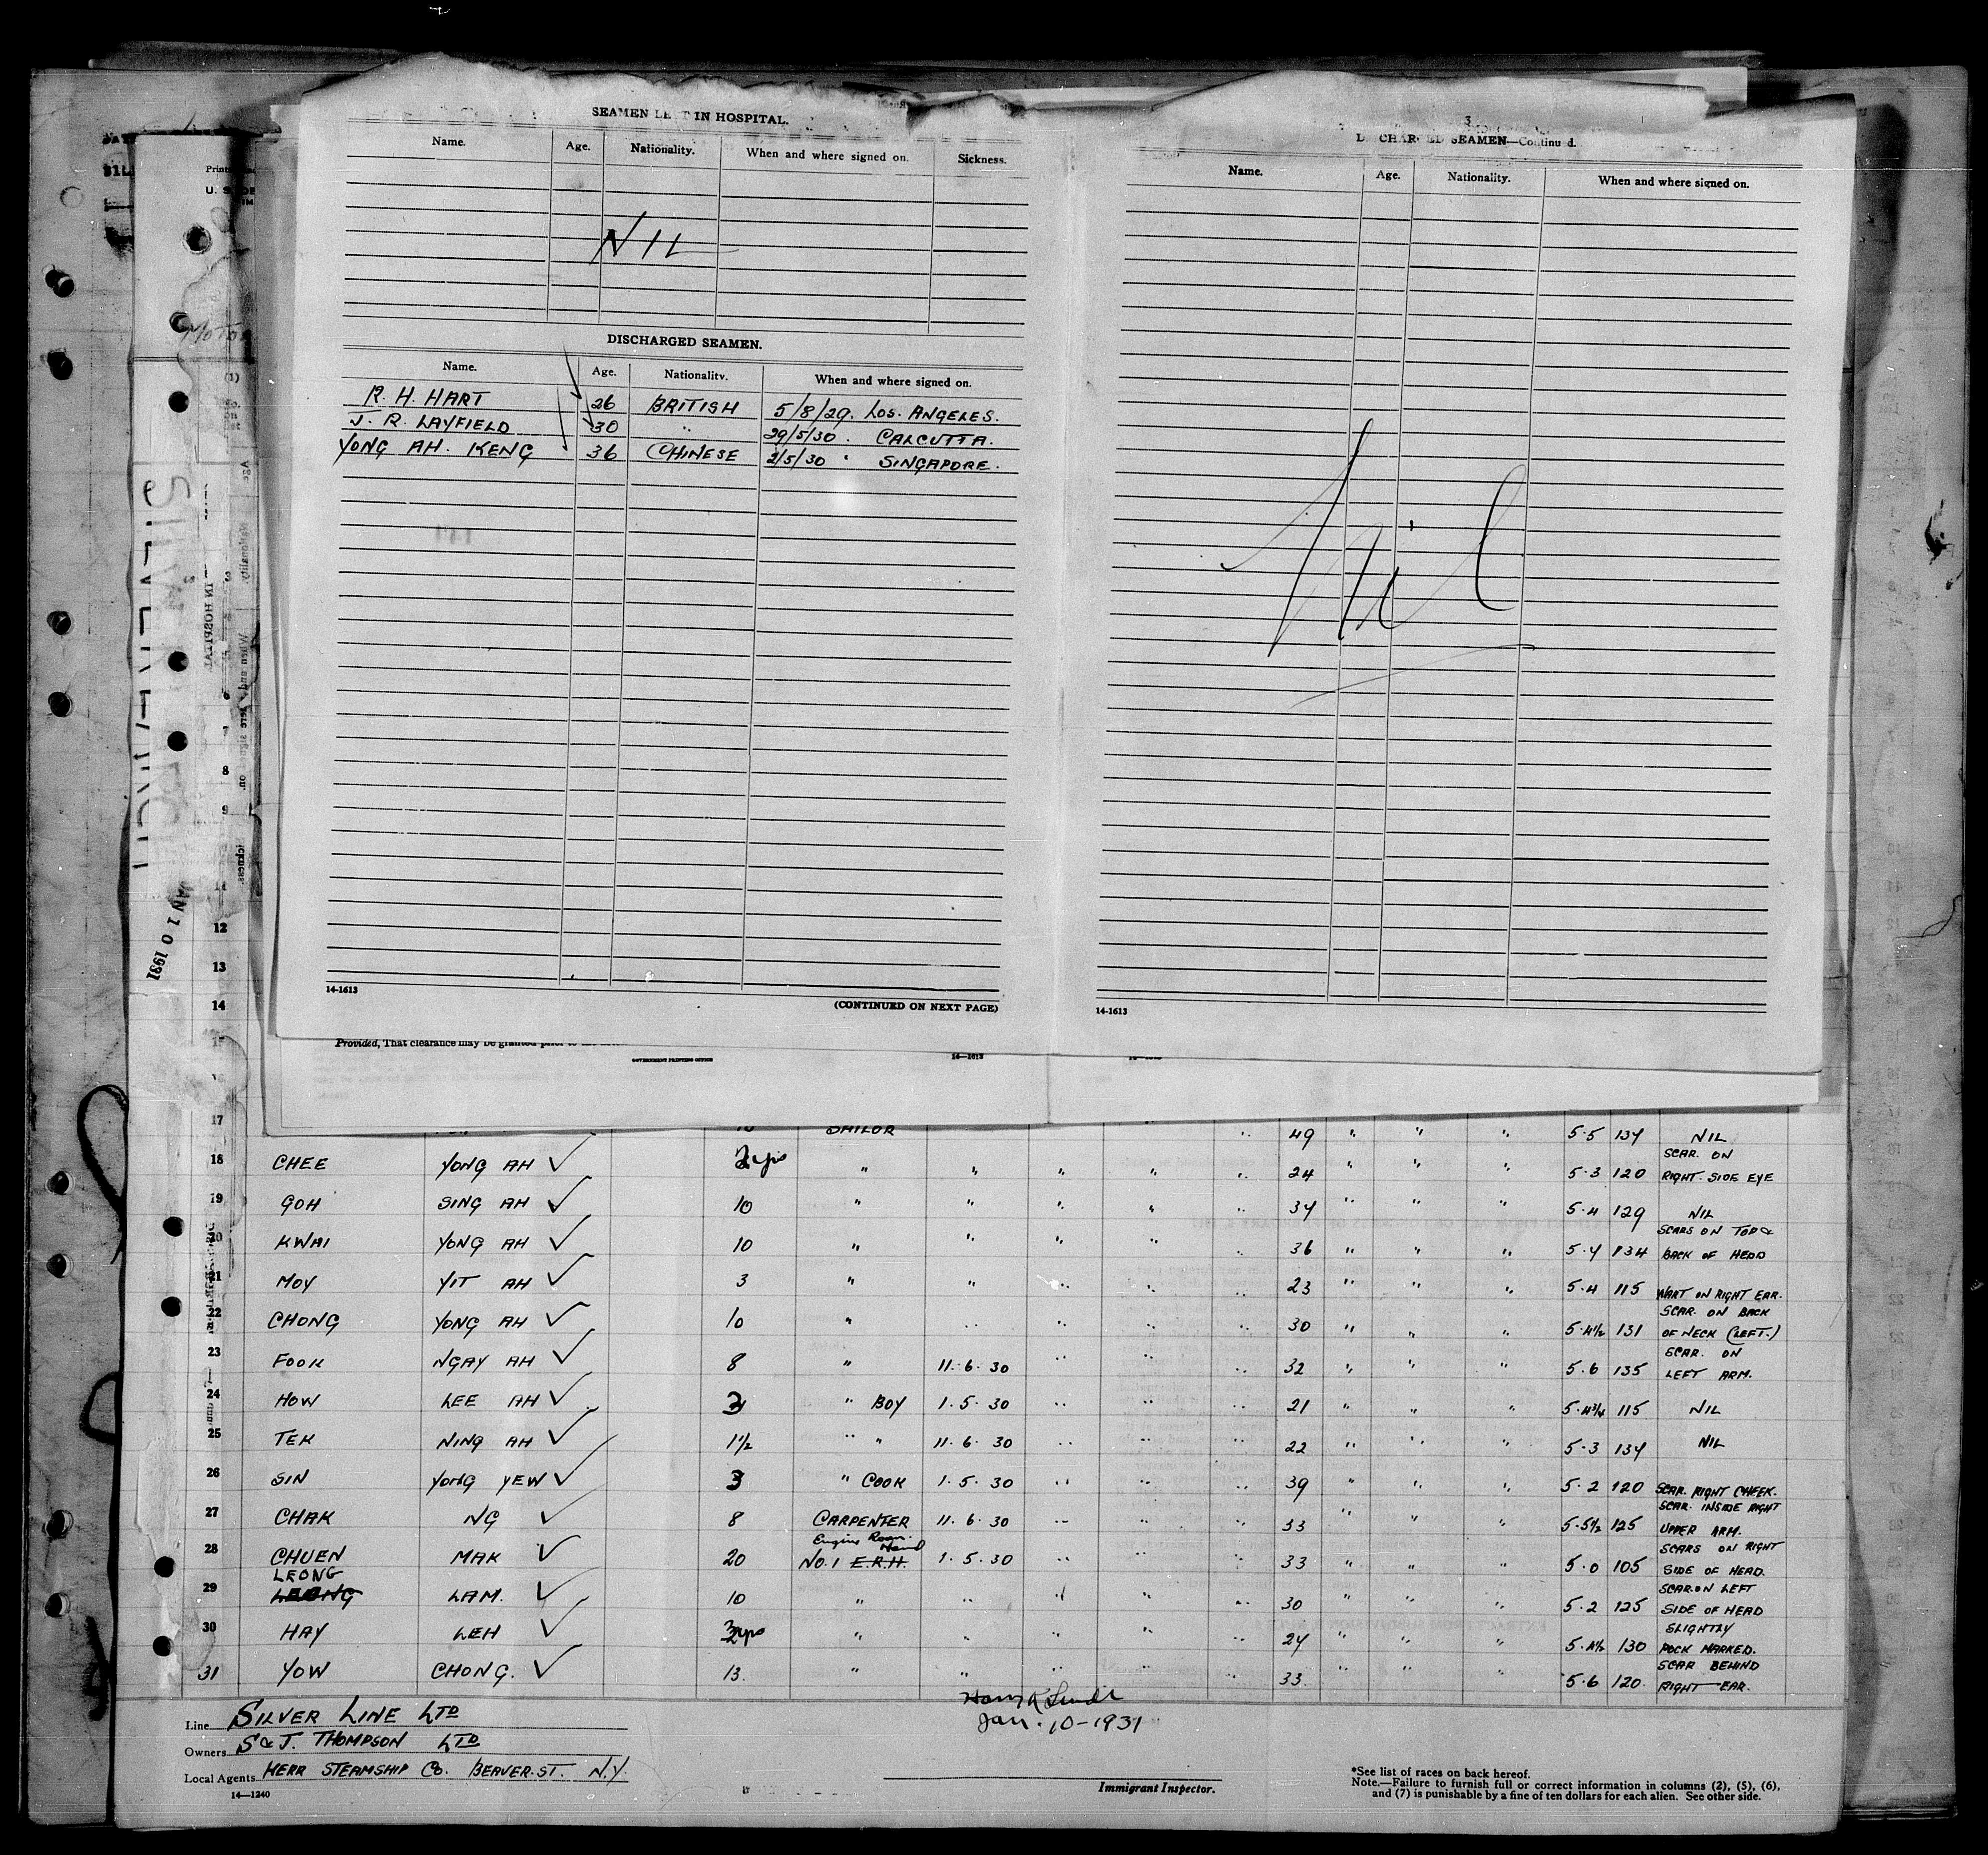 SEAMEN LE T IN HOSPITAL.
Name. Age. Nationality. When and where signed on. Sickness.
NIL
DISCHARGED SEAMEN.
Name. Age. Nationality. When and where signed on.
R. H. HART 26 BRITISH 5/8/29. LOS. ANGELES.
J. R. LAYFIELD 30 " 29/5/30. CALCUTTA.
YONG AH. KENG 36 CHINESE 2/5/30 " SINGAPORE.
14-1613
(CONTINUED ON NEXT PAGE)
3
D CHAR ED SEAMEN—Continu d.
Name. Age. Nationality. When and where signed on.
Nil
14-1613
Provided, That clearance may be granted prior to
GOVERNMENT PRINTING OFFICE
JAN 10 1931
17 SAILOR " " 49 " " " 5·5 134 NIL
18 CHEE YONG AH ✓ 2 yrs " " " " " 24 " " " 5·3 120 SCAR. ON
RIGHT. SIDE EYE
19 GOH SING AH ✓ 10 " " " " " 34 " " " 5·4 129 NIL
20 KWAI YONG AH ✓ 10 " " " " " 36 " " " 5·4 134 SCARS ON TOP &
BACK OF HEAD
21 MOY YIT AH ✓ 3 " " " " " 23 " " " 5·4 115 WART ON RIGHT EAR.
22 CHONG YONG AH ✓ 10 " " " " " 30 " " " 5·4½ 131 SCAR. ON BACK
OF NECK (LEFT.)
23 FOOK NGAY AH ✓ 8 " 11·6·30 " " " 32 " " " 5·6 135 SCAR. ON
LEFT ARM.
24 HOW LEE AH ✓ 3 " BOY 1·5·30 " " " 21 " " " 5·4¾ 115 NIL
25 TEK NING AH ✓ 1½ " " 11·6·30 " " " 22 " " " 5·3 134 NIL
26 SIN YONG YEW ✓ 3 " COOK 1·5·30 " " " 39 " " " 5·2 120 SCAR. RIGHT CHEEK.
27 CHAK NG ✓ 8 CARPENTER 11·6·30 " " " 33 " " " 5·5½ 125 SCAR. INSIDE RIGHT
UPPER ARM.
Engine Room Hand
28 CHUEN MAK ✓ 20 NO. 1 E.R.H. 1·5·30 " " " 33 " " " 5·0 105 SCARS ON RIGHT
SIDE OF HEAD.
LEONG
29 LEONG LAM. ✓ 10 " " " " " 30 " " " 5·2 125 SCAR ON LEFT
SIDE OF HEAD
30 HAY LEH ✓ 3yrs " " " " " 24 " " " 5·4½ 130 SLIGHTLY
POCK MARKED.
31 YOW CHONG. ✓ 13. " " " " " 33. " " " 5·6 120. SCAR BEHIND
RIGHT EAR.
Line SILVER LINE LTD
Owners S & J. THOMPSON LTD
Local Agents KERR STEAMSHIP CO. BEAVER·ST. N.Y.
14—1240
Jan. 10-1931
Immigrant Inspector.
*See list of races on back hereof.
Note.—Failure to furnish full or correct information in columns (2), (5), (6),
and (7) is punishable by a fine of ten dollars for each alien. See other side.